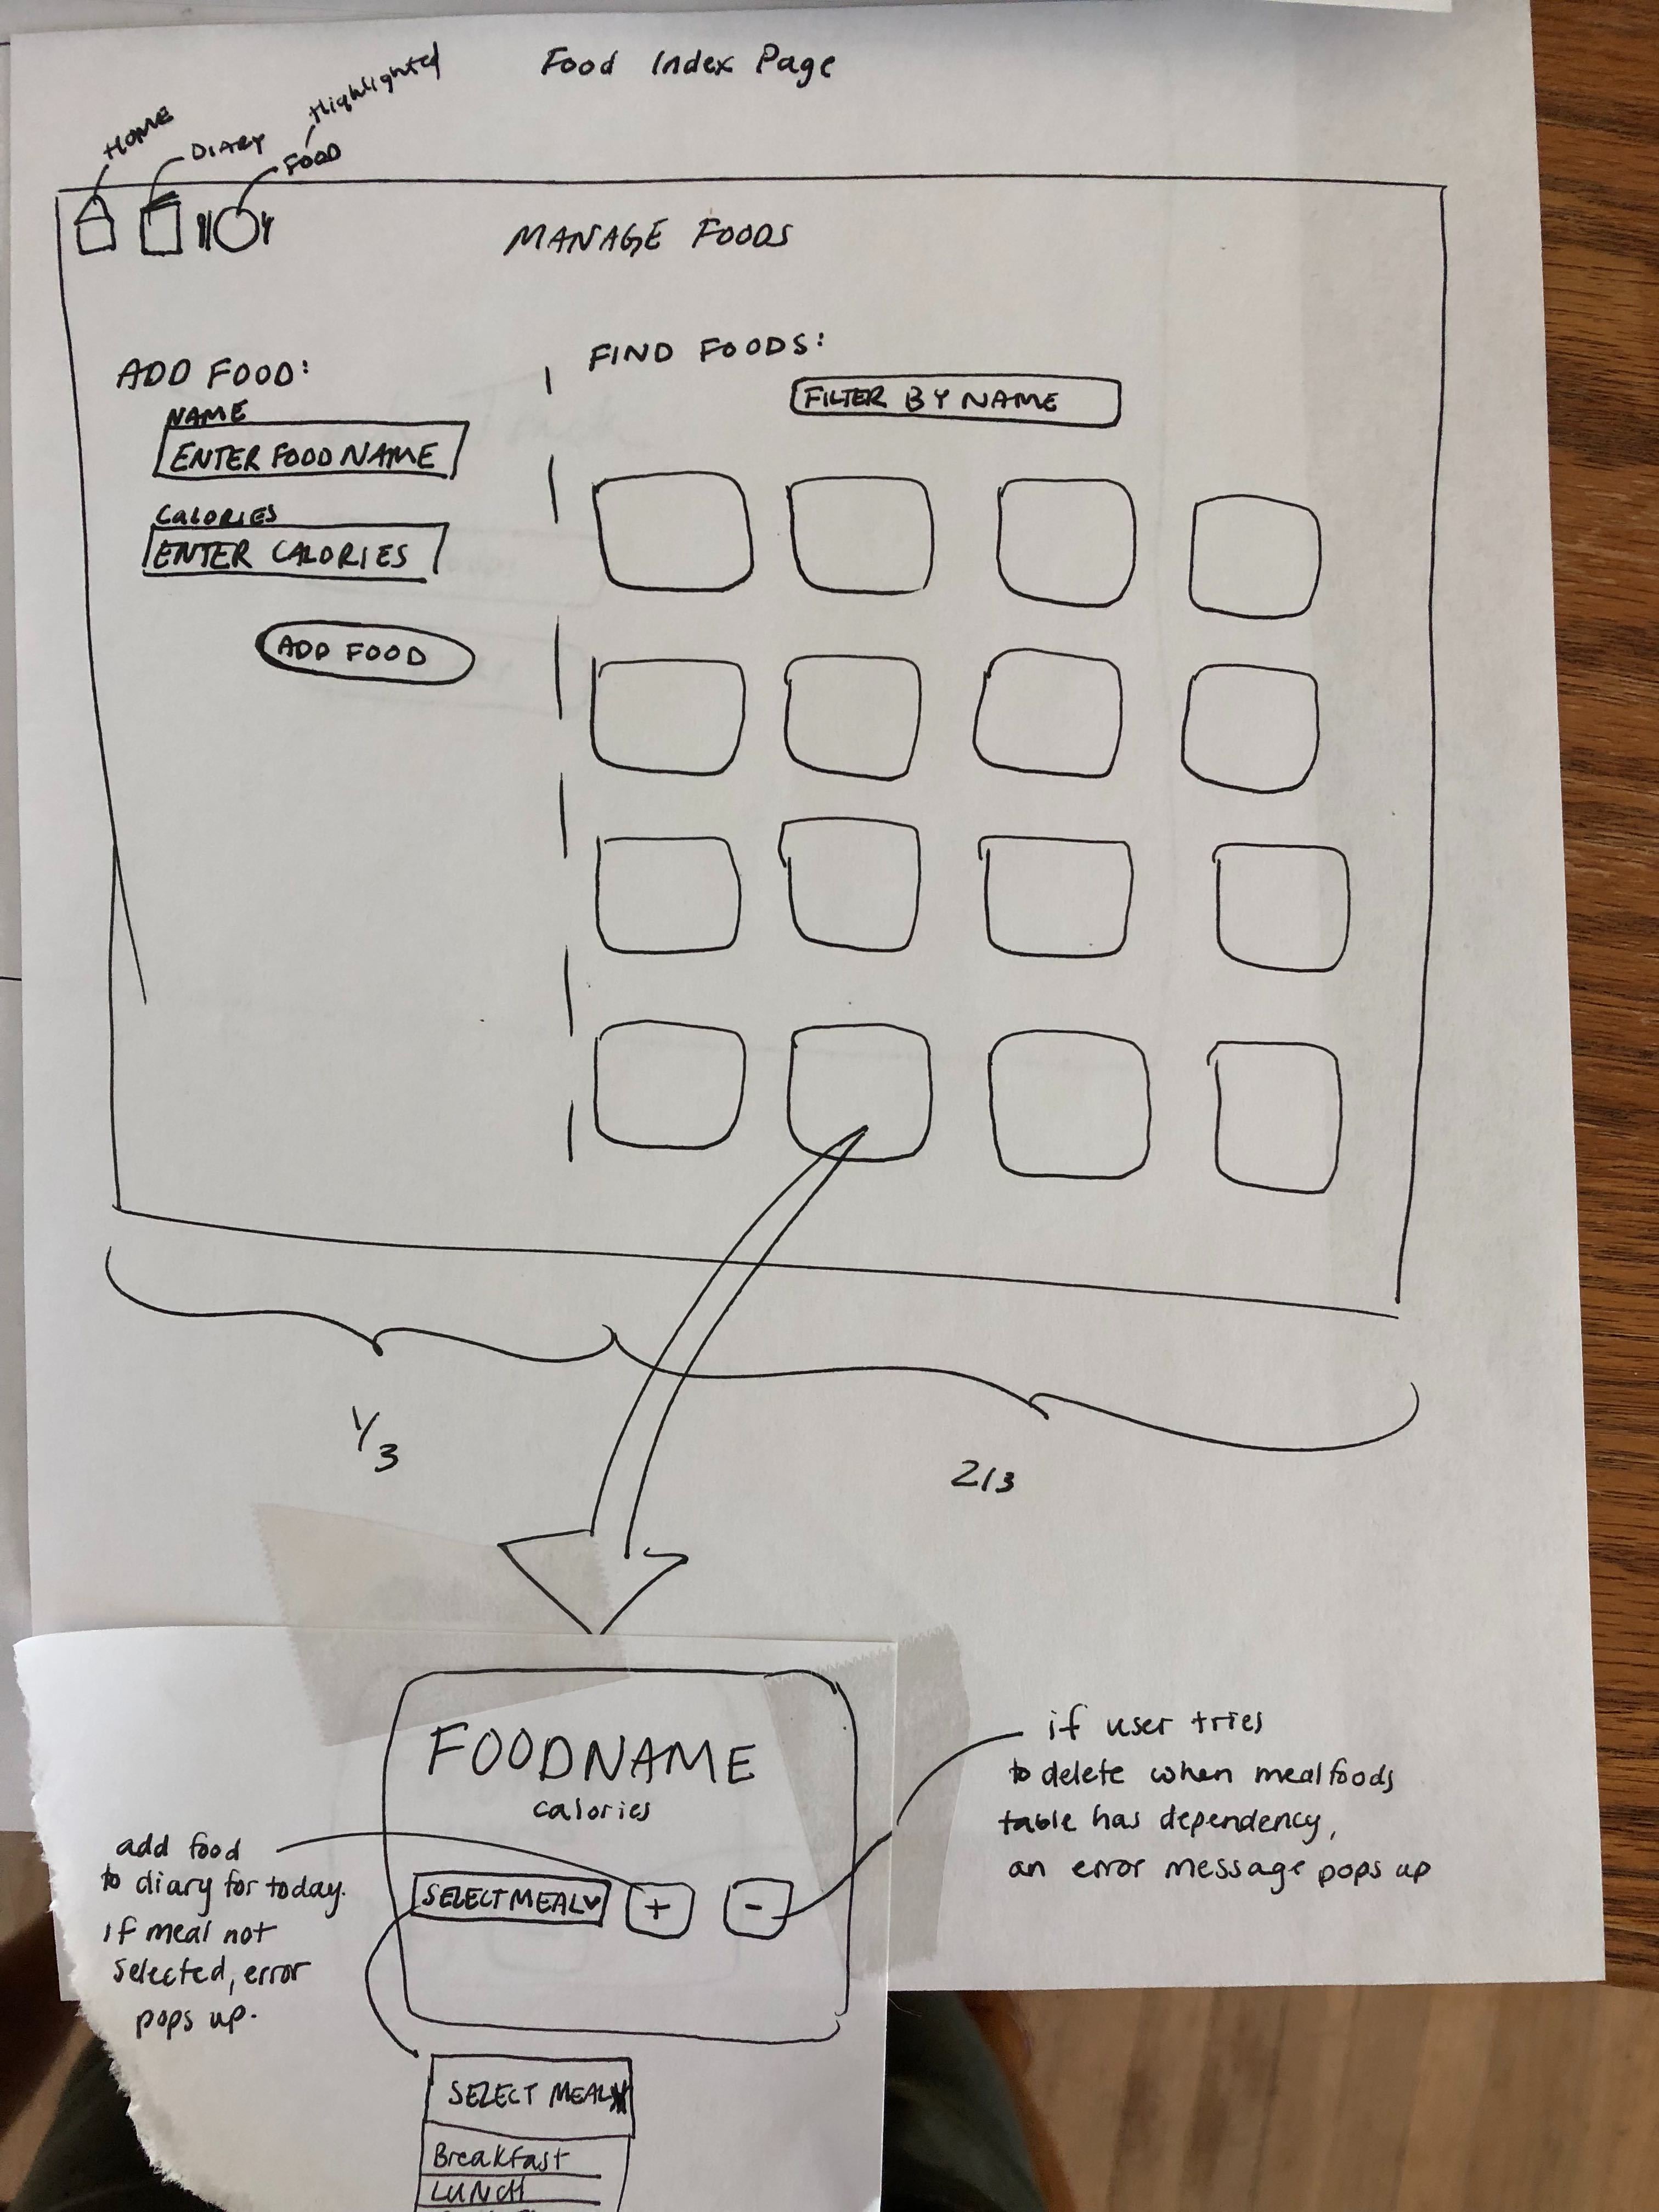 Food Index Page
Highlighted
HOME
DIARY
FOOD
MANAGE FOODS
ADD FOOD:
NAME
ENTER FOOD NAME
CALORIES
ENTER CALORIES
ADD FOOD
FIND FOODS:
FILTER BY NAME
1/3
2/3
FOODNAME
calories
SELECT MEAL
+
-
add food
to diary for today.
if meal not
selected, error
pops up.
if user tries
to delete when mealfoods
table has dependency,
an error message pops up
SELECT MEAL
Breakfast
LUNCH